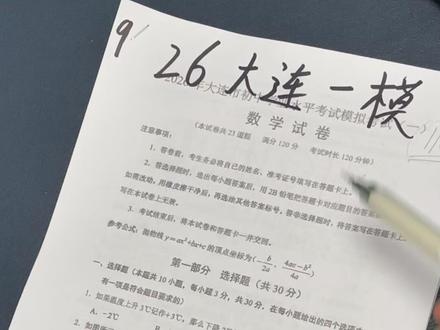 9
26 大连一模
数学试卷
(本试卷共23道题 满分120分 考试时长120分钟)
注意事项:
1. 答卷前,考生务必将自己的姓名、准考证号填写在答题卡上。
2. 答选择题时,选出每小题答案后,用2B铅笔把答题卡对应题目的答案
如需改动,用橡皮擦干净后,再选涂其他答案标号。答非选择题时,将答案写在答题卡上。
写在本试卷上无效。
3. 考试结束后,将本试卷和答题卡一并交回。
参考公式:抛物线 y=ax²+bx+c 的顶点坐标为(-b/2a, (4ac-b²)/4a)
第一部分 选择题(共30分)
一、选择题(本题共10小题,每小题3分,共30分,在每小题给出的四个选项
有一项是符合题目要求的)
1. 如果温度上升3℃记作+3℃,那么下
A. -2℃
2. 如图所